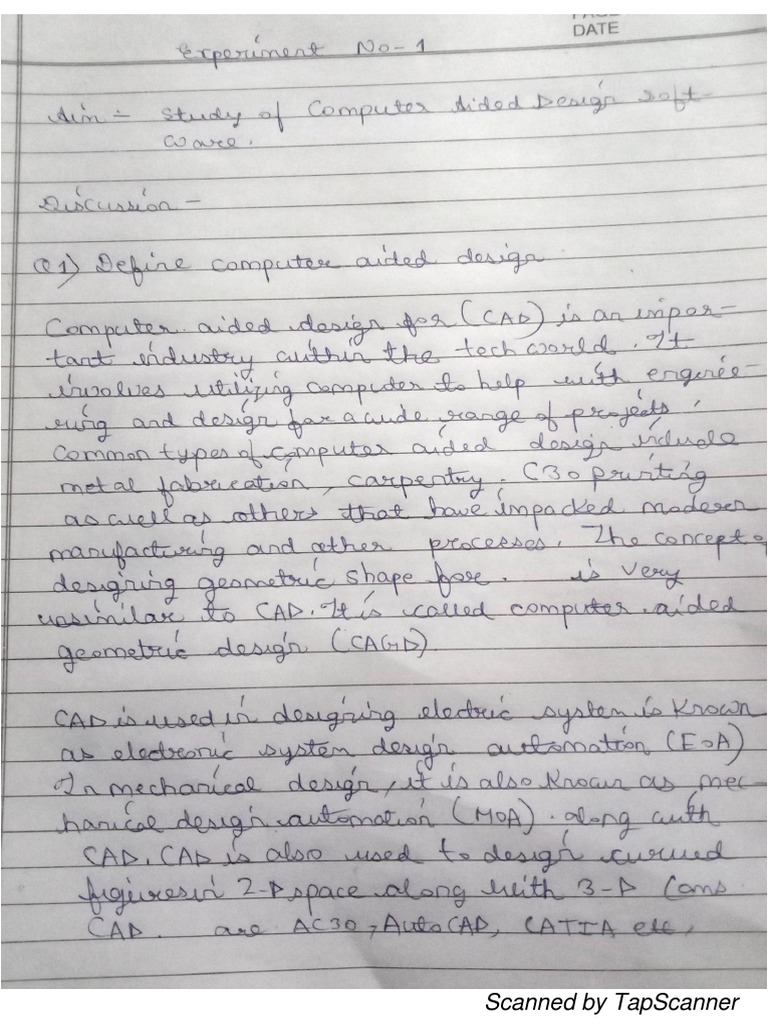 DATE
Experiment No-1
Aim - Study of Computer Aided Design soft-
ware.
Discussion -
Q1) Define computer aided design
Computer aided design for (CAD) is an impor-
tant industry within the tech world. It
involves utilizing computer to help with enginee-
ring and design for a wide range of projects.
Common types of computer aided design include
metal fabrication, carpentry. C3D printing
as well as others that have impacked moderen
manufacturing and other processes. The concept of
designing geometric shape for. is very
unsimilar to CAD. It is called computer aided
geometric design (CAGD).
CAD is used in designing electric system is known
as electronic system design automation (EDA)
In mechanical design, it is also known as mec-
hanical design automation (MDA). along with
CAD. CAD is also used to design curved
figures in 2-D space along with 3-D
CAD. are AC3D, AutoCAD, CATIA etc,
Scanned by TapScanner